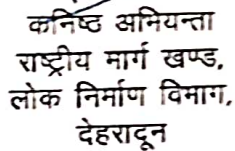 कनिष्ठ अभियन्ता
राष्ट्रीय मार्ग खण्ड,
लोक निर्माण विभाग,
देहरादून